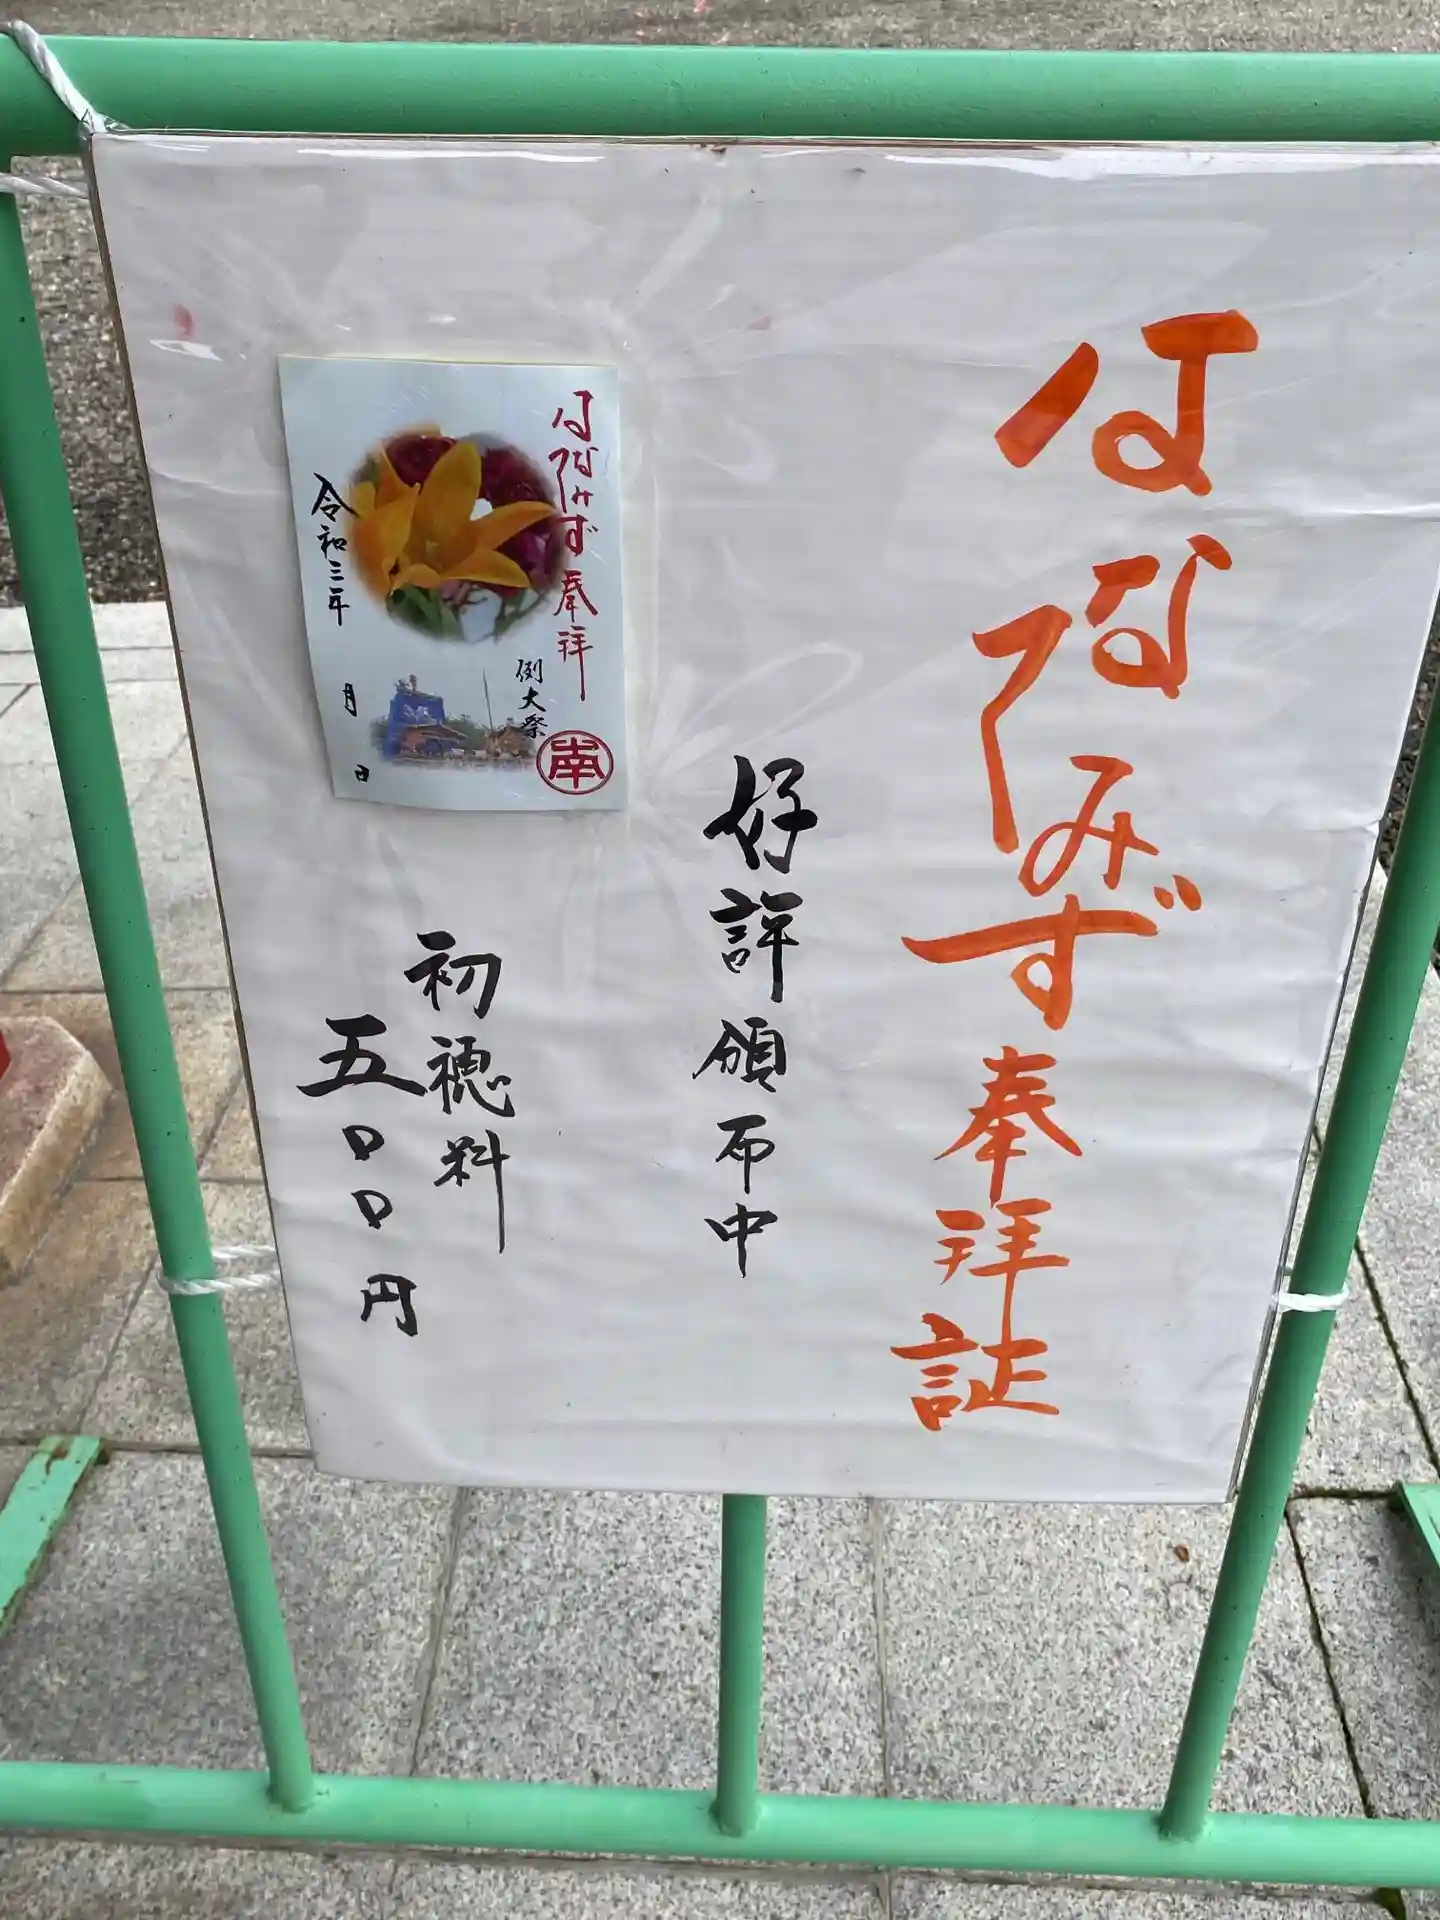 はなてみず奉拝証
好評頒布中
初穂料
五〇〇円
はなてみず奉拝
例大祭
南
令和三年　月　日